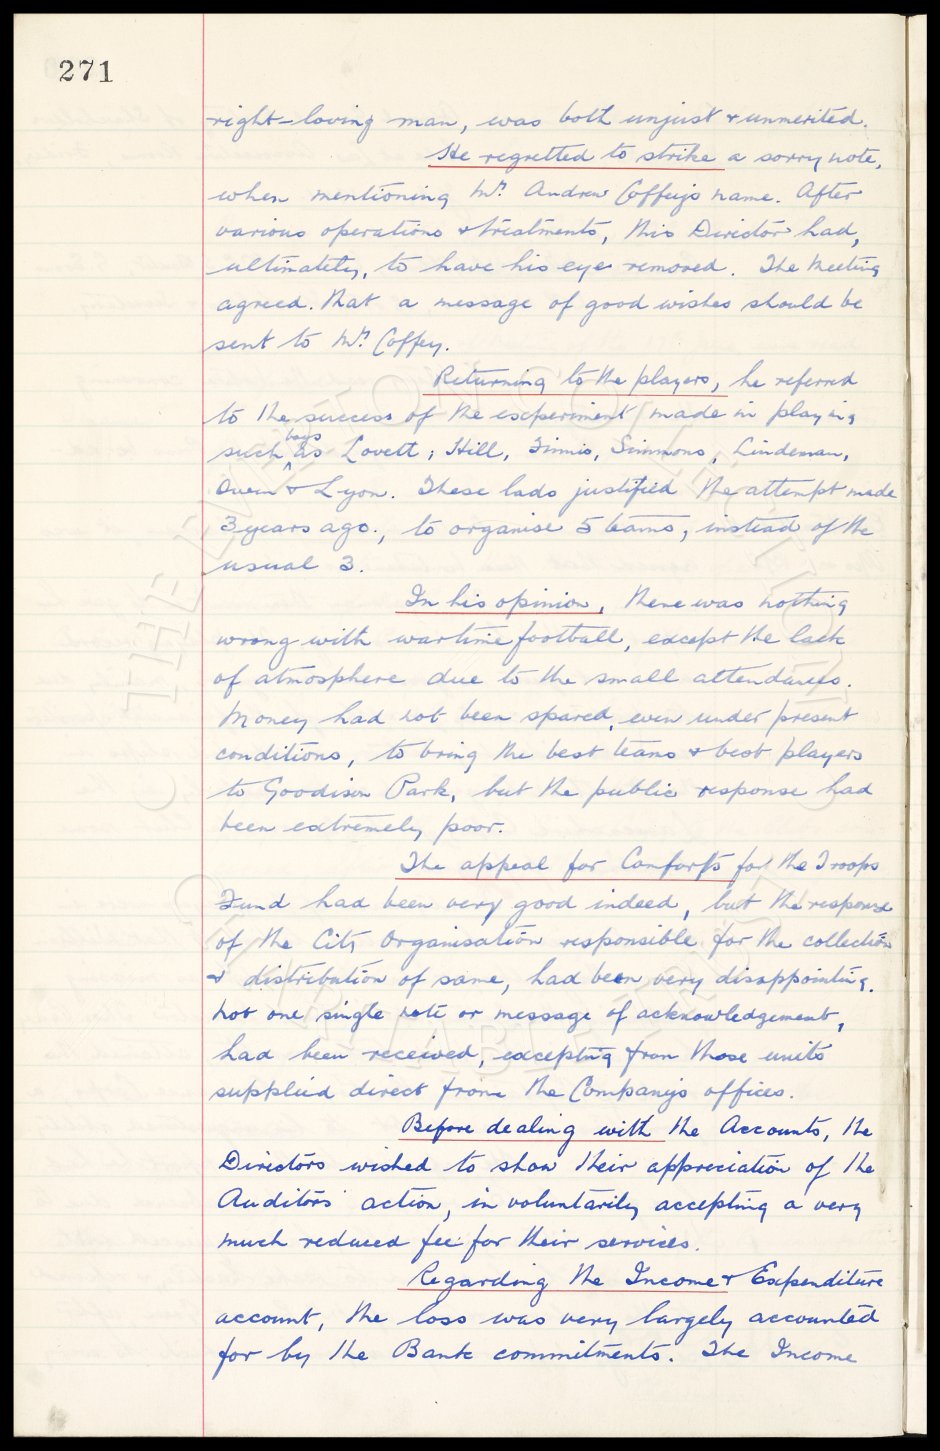 271
right-loving man, was both unjust & unmerited.
He regretted to strike a sorry note,
when mentioning Mr. Andrew Coffey's name. After
various operations & treatments, this Director had,
ultimately, to have his eye removed. The Meeting
agreed that a message of good wishes should be
sent to Mr. Coffey.
Returning to the players, he referred
to the success of the experiment made in playing
boys
such as Lovett, Hill, Finnis, Simmons, Lindeman,
Owen & Lyon. These lads justified the attempt made
3 years ago, to organise 5 teams, instead of the
usual 3.
In his opinion, there was nothing
wrong with wartime football, except the lack
of atmosphere due to the small attendances.
Money had not been spared, even under present
conditions, to bring the best teams & best players
to Goodison Park, but the public response had
been extremely poor.
The appeal for Comforts for the Troops
Fund had been very good indeed, but the response
of the City Organisation responsible for the collection
& distribution of same, had been very disappointing.
Not one single note or message of acknowledgement,
had been received, excepting from those units
supplied direct from the Company's offices.
Before dealing with the Accounts, the
Directors wished to show their appreciation of the
Auditors' action, in voluntarily accepting a very
much reduced fee for their services.
Regarding the Income & Expenditure
account, the loss was very largely accounted
for by the Bank commitments. The Income
THE EVERTON COLLECTION
CHARITABLE TRUST